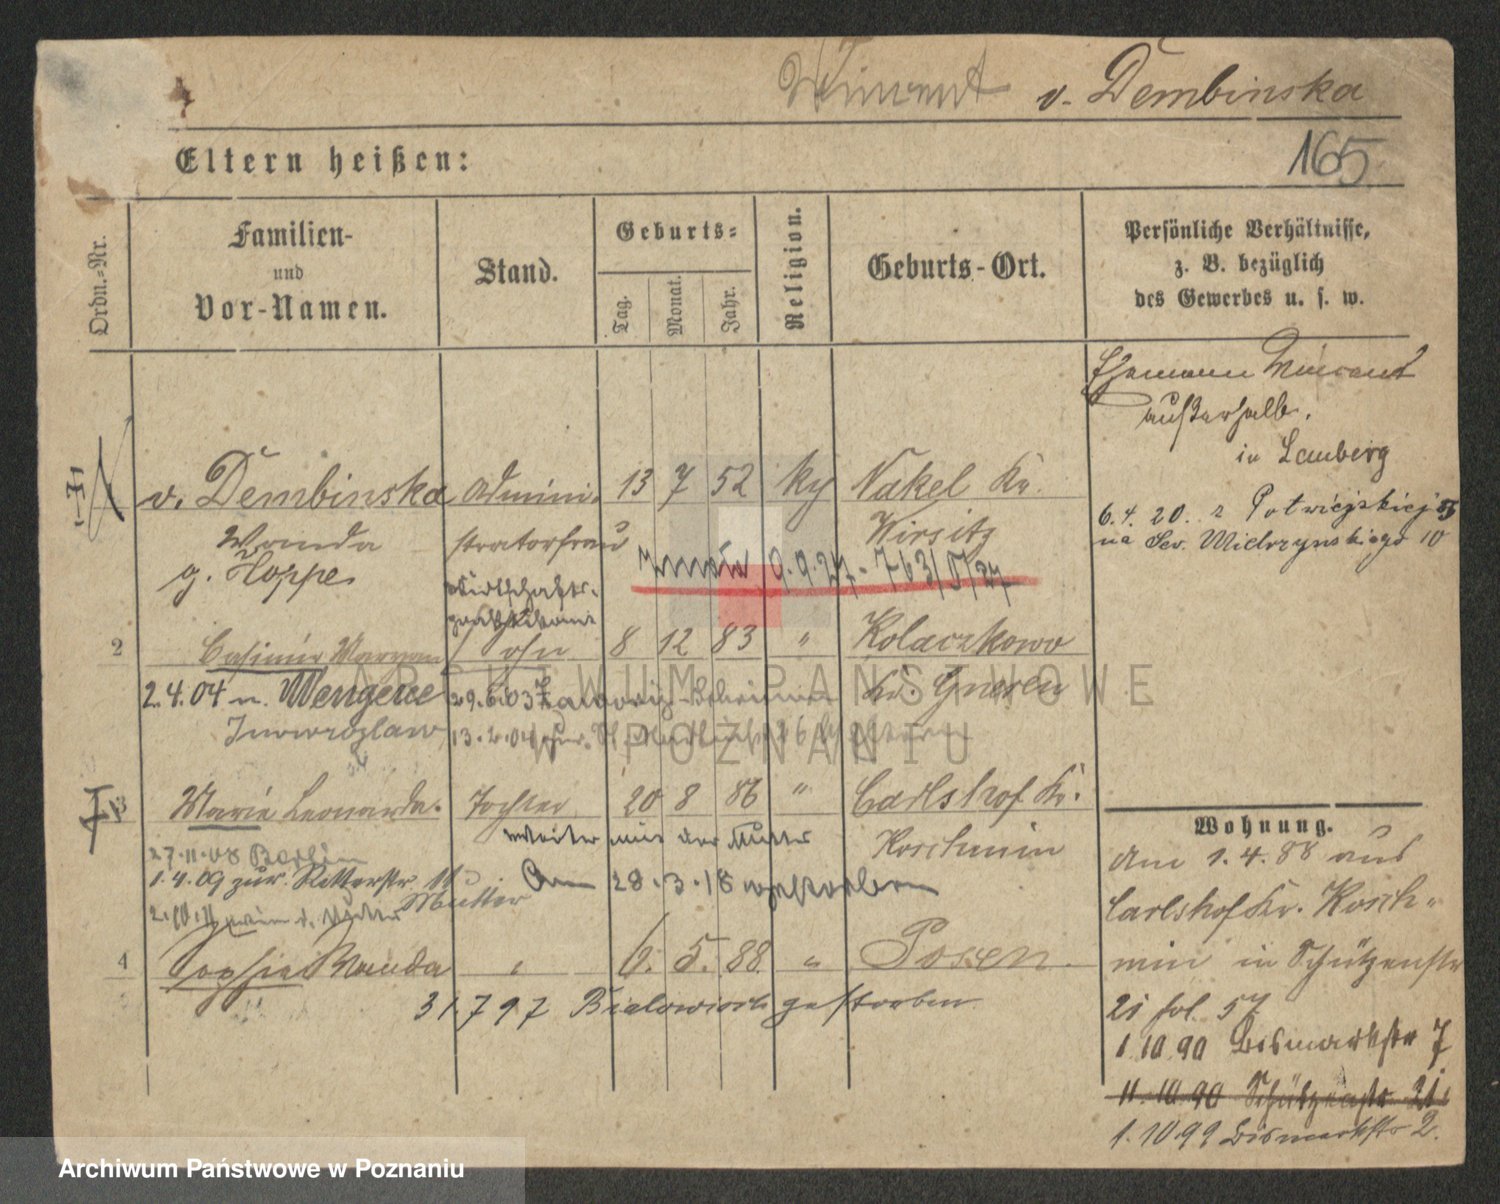 v. Dembinska
165
Eltern heißen:
Ordn.-Nr.
Familien-
und
Vor-Namen.
Stand.
Geburts-
Tag.
Monat.
Jahr.
Religion.
Geburts-Ort.
Persönliche Verhältnisse,
z. B. bezüglich
des Gewerbes u. s. w.
Ehemann Vincent
außerhalb.
in Lemberg
v. Dembinska Admini- 13 7 52 Nakel Kr.
Wanda stratorfrau Wirsitz
g. Hoppe
6.4.20. z Potwiejskiej
na Sew. Mielżyńskiego 10
zmarła 9.9.27
2 Casimir Maryan Sohn 8 12 83 " Kolaczkowo
Kr. Gnesen
2.4.04 n. 29.6.03
Inowrazlaw 13.2.04 zur.
3 Marie Leonarda. Tochter 20 8 86 " Carlshof Kr.
Koschmin
weiter mit der Mutter
27.11.08 Berlin
1.4.09 zur. Ritterstr
Mutter
Am 28.3.18 gestorben
4 Sophia Wanda " 6. 5. 88. " Posen.
31.7 97 gestorben
Wohnung.
Am 1.4.88 aus
Carlshof Kr. Kosch-
min in Schützenstr
21 fol. 57
1.10.90 Bismarckstr 7
11.10.90 Schützenstr 21
1.10.99 Bismarckstr 2.
ARCHIWUM PAŃSTWOWE
W POZNANIU
Archiwum Państwowe w Poznaniu